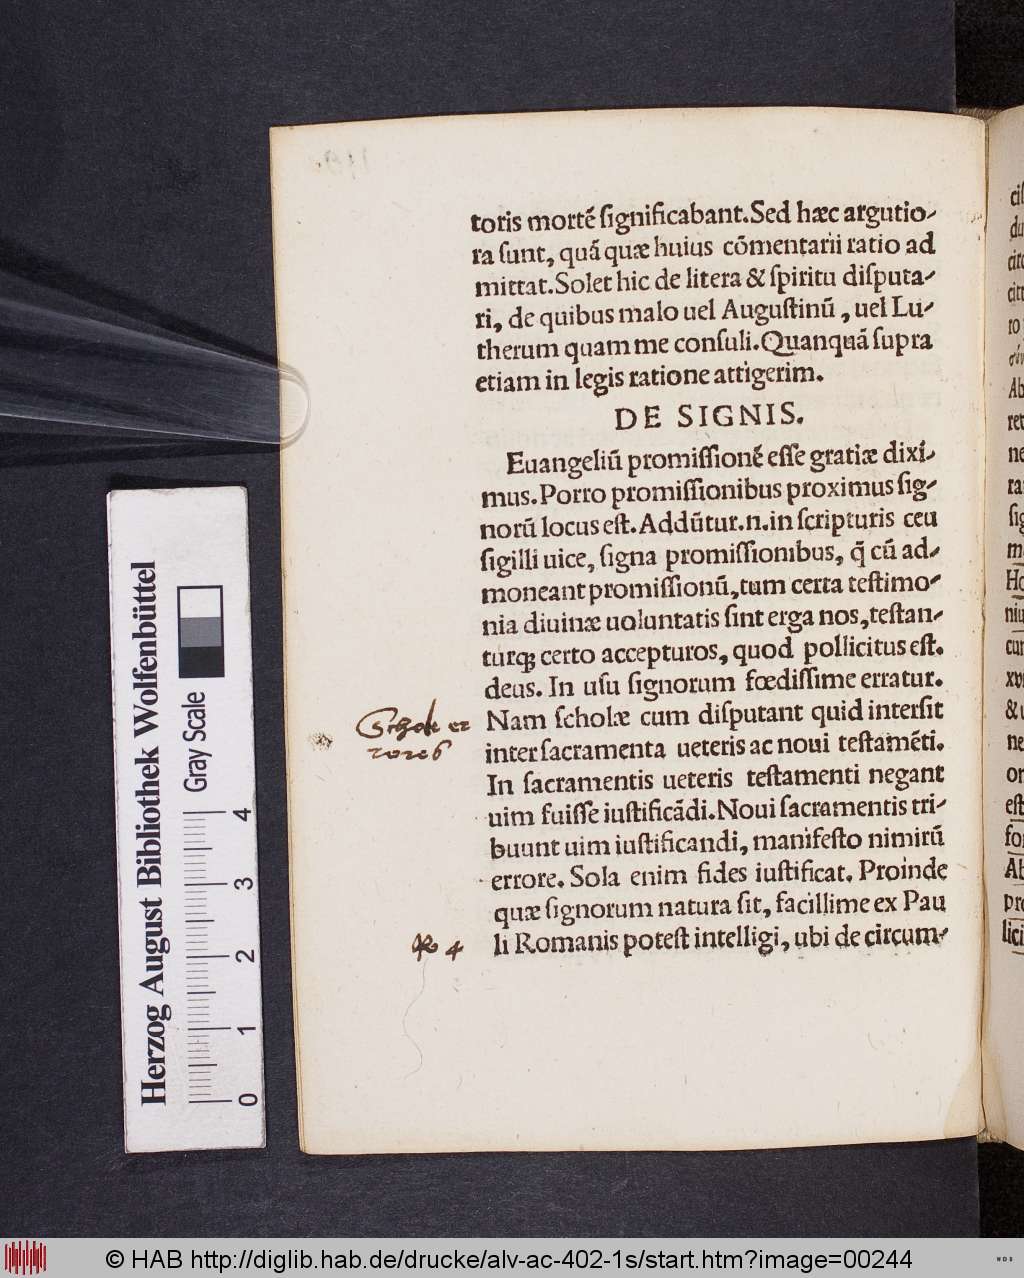 toris mortẽ ſignificabant.Sed hæc argutio-
ra ſunt, quã quæ huius cõmentarii ratio ad
mittat.Solet hic de litera & ſpiritu diſputa-
ri, de quibus malo uel Auguſtinũ , uel Lu-
therum quam me conſuli.Quanquã ſupra
etiam in legis ratione attigerim.
DE SIGNIS.
Euangeliũ promiſſionẽ eſſe gratiæ dixi-
mus.Porro promiſſionibus proximus ſig-
norũ locus eſt.Addũtur.n.in ſcripturis ceu
ſigilli uice, ſigna promiſſionibus, q̃ cũ ad-
moneant promiſſionũ,tum certa teſtimo-
nia diuinæ uoluntatis ſint erga nos,teſtan-
turq; certo accepturos, quod pollicitus eſt.
deus. In uſu ſignorum fœdiſſime erratur.
Nam ſcholæ cum diſputant quid interſit
inter ſacramenta ueteris ac noui teſtamẽti.
In ſacramentis ueteris teſtamenti negant
uim fuiſſe iuſtificãdi.Noui ſacramentis tri-
buunt uim iuſtificandi, manifeſto nimirũ
errore. Sola enim fides iuſtificat. Proinde
quæ ſignorum natura ſit, facillime ex Pau
li Romanis poteſt intelligi, ubi de circum-
Schol er
rores
Ro 4
Herzog August Bibliothek Wolfenbüttel
Gray Scale
0 1 2 3 4
© HAB http://diglib.hab.de/drucke/alv-ac-402-1s/start.htm?image=00244